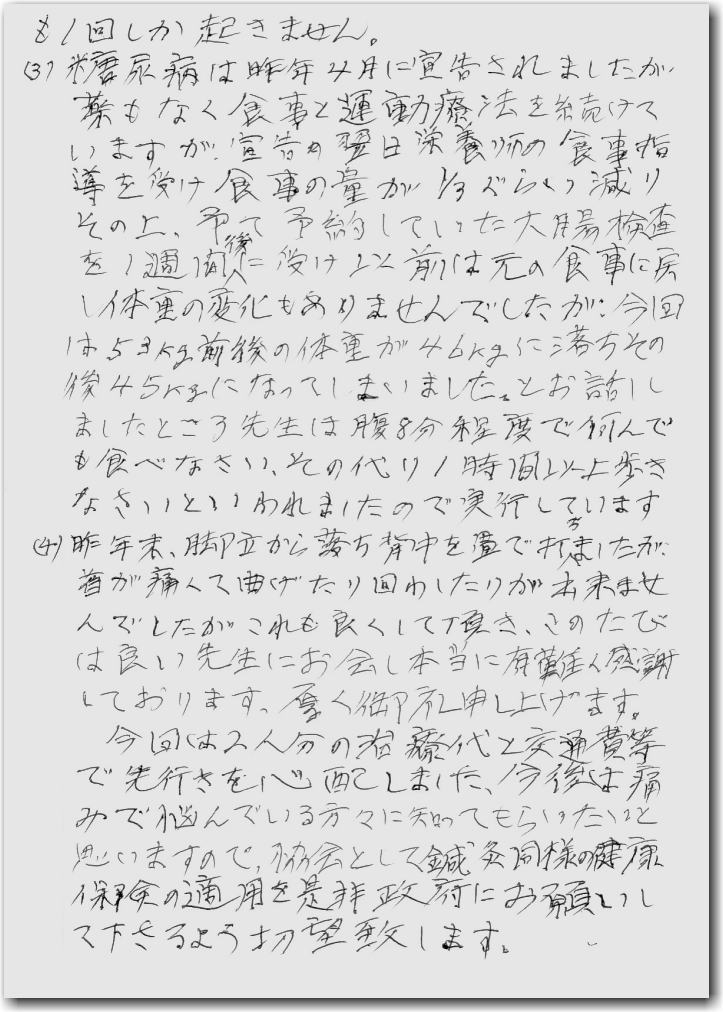 も1回しか起きません。
(3) 糖尿病は昨年4月に宣告されましたが
薬もなく食事と運動療法を続けて
いますが、宣告の翌日栄養師の食事指
導を受け食事の量が1/3ぐらい減り
その上、予て予約していた大腸検査
を1週間後に受け以前は元の食事に戻
し体重の変化もありませんでしたが、今回
は53kg前後の体重が46kgに落ちその
後45kgになってしまいました。とお話し
ましたところ先生は腹8分程度で何んで
も食べなさい、その代り1時間以上歩き
なさいといわれましたので実行しています
(4) 昨年末、脚立から落ち背中を畳で打ちましたが、
首が痛くて曲げたり回わしたりが出来ませ
んでしたがこれも良くして頂き、このたび
は良い先生にお会し本当に有難く感謝
しております。厚く御礼申し上げます。
今回は2人分の治療代と交通費等
で先行きを心配しました、今後は痛
みで悩んでいる方々に知ってもらいたいと
思いますので、協会として鍼灸同様の健康
保険の適用を是非政府にお願いし
て下さるよう切望致します。